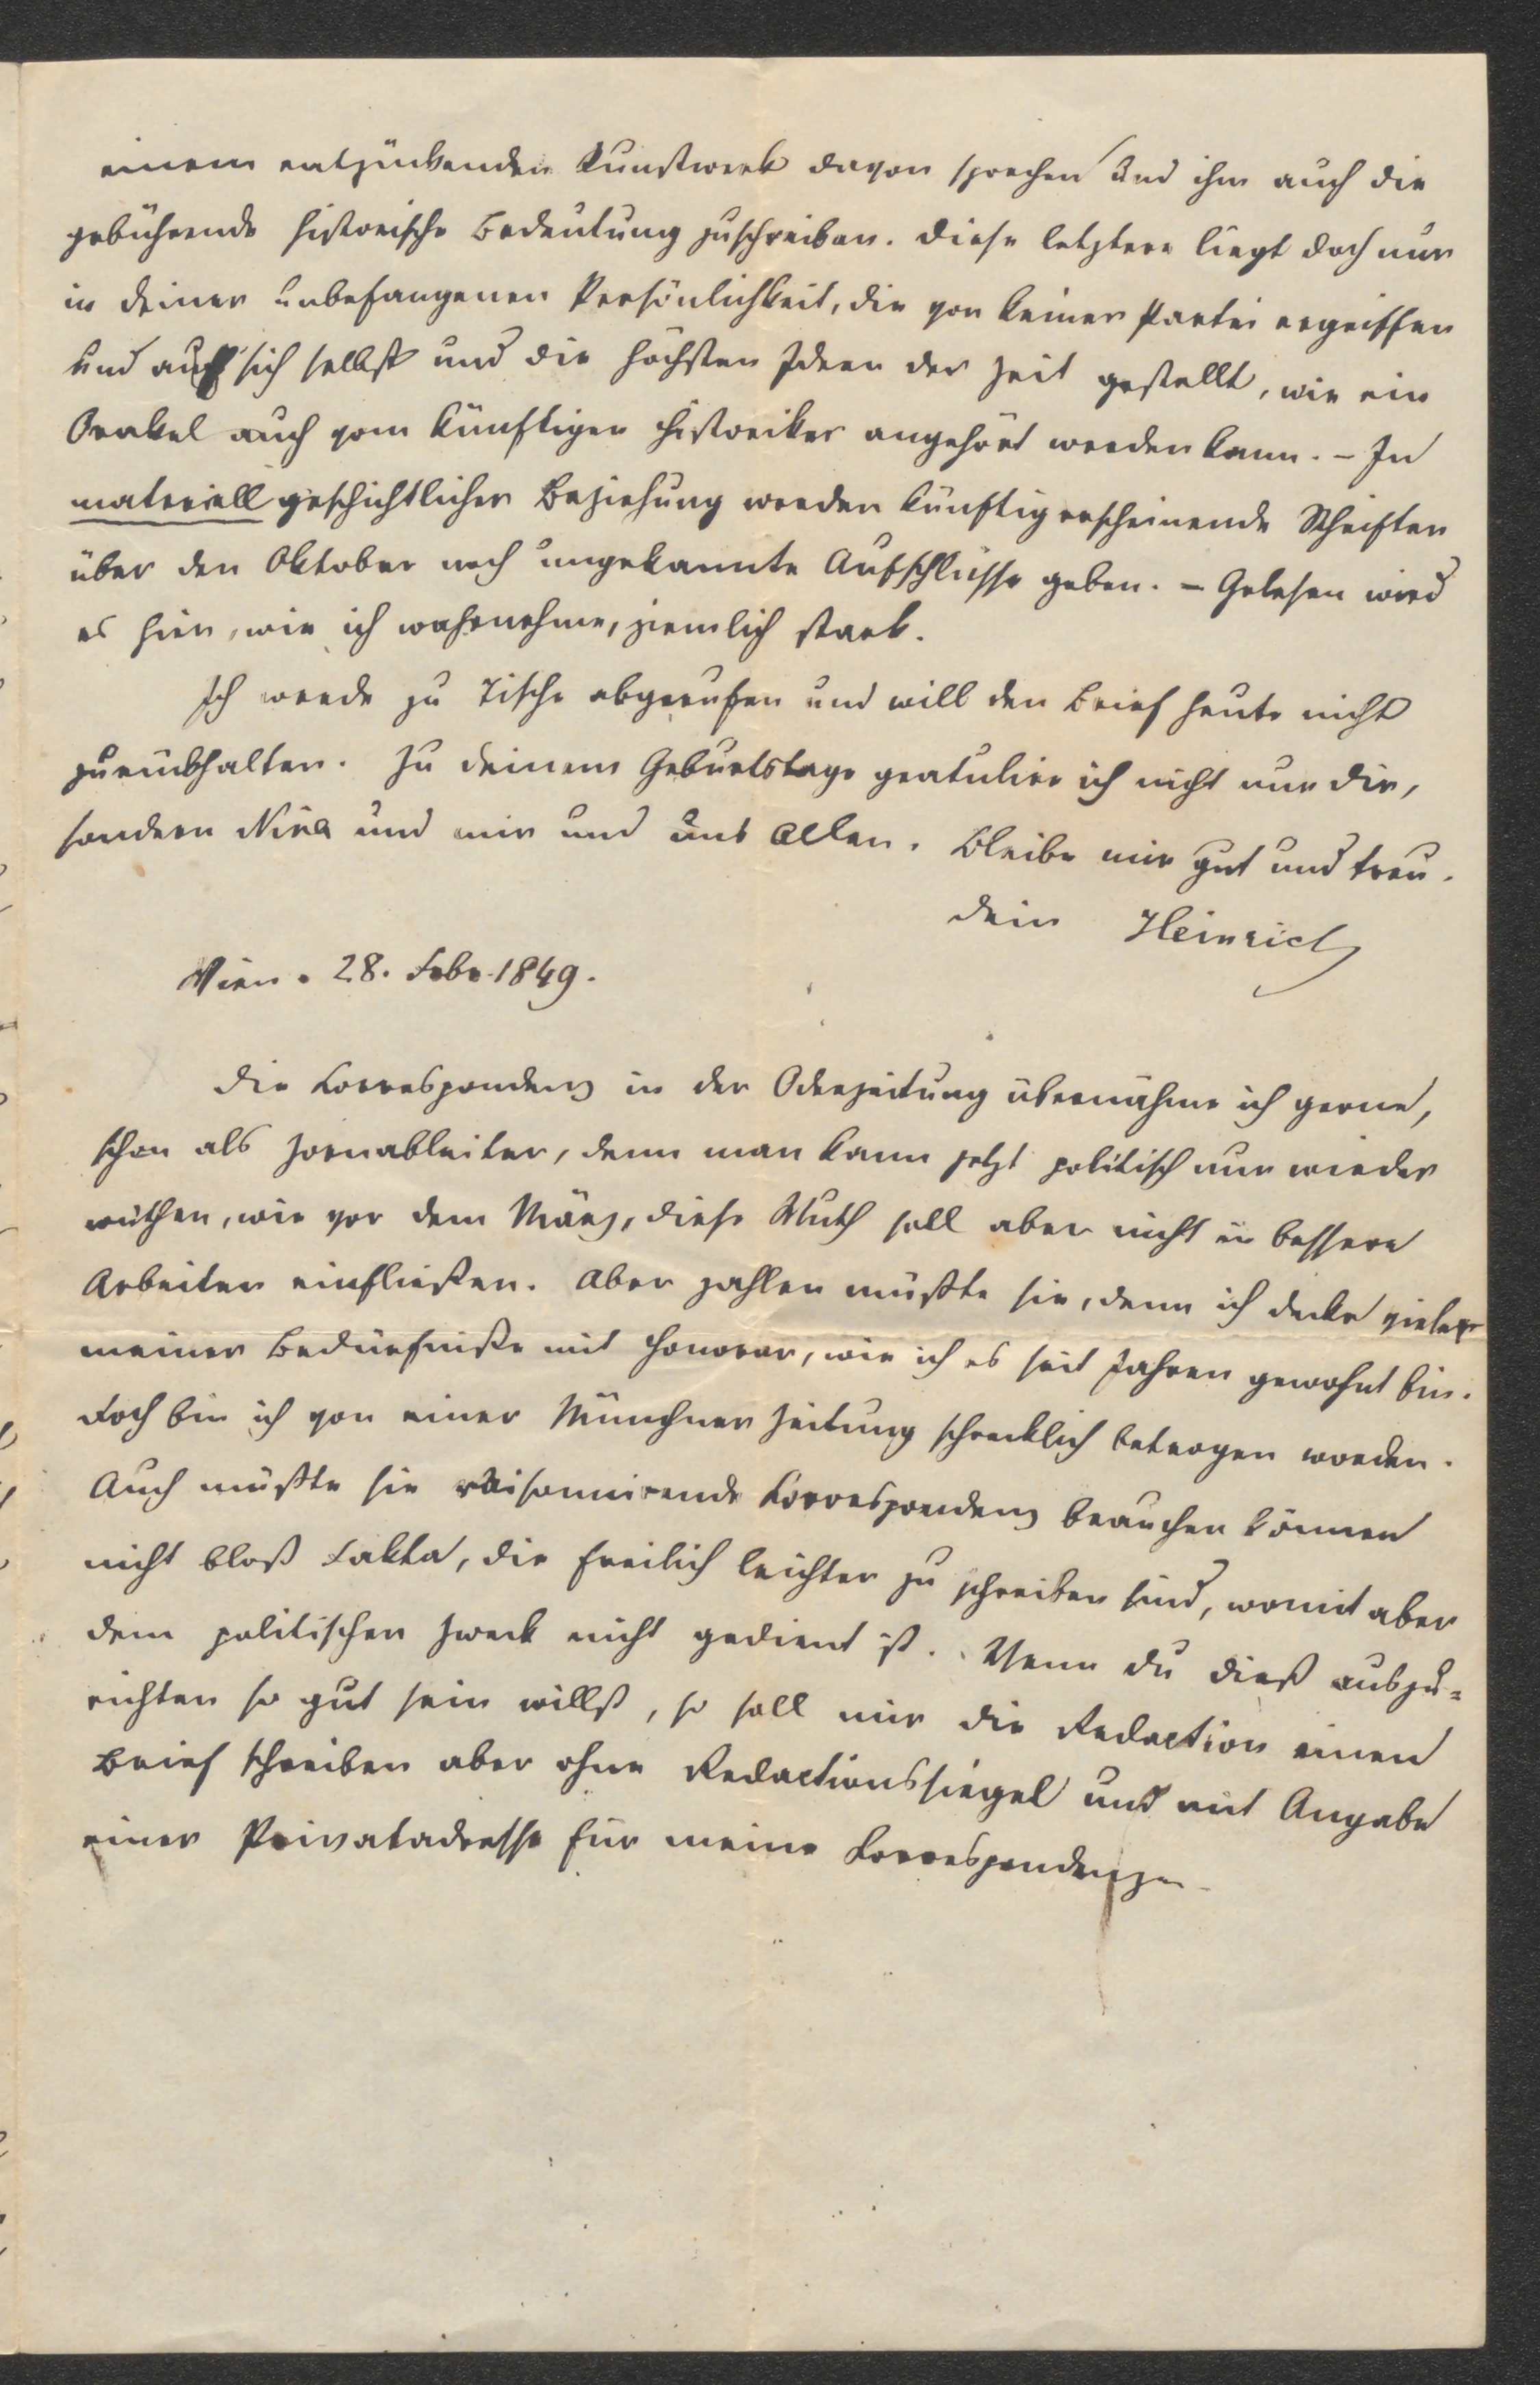 einem entzückenden Kunstwerk davon sprechen und ihm auch die
gebührende historische Bedeutung zuschreiben. Diese letztere liegt doch nur
in deiner unbefangenen Persönlichkeit, die von keiner Partei ergriffen
und auf sich selbst und die höchsten Ideen der Zeit gestellt, wie ein
Orakel auch vom künftigen Historiker angehört werden kann. – In
materiell geschichtlicher Beziehung werden künftig erscheinende Schriften
über den Oktober noch ungekannte Aufschlüsse geben. – Gelesen wird
es hier, wie ich wahrnehme, ziemlich stark.
Ich werde zu Tische abgerufen und will den Brief heute nicht
zurückhalten. Zu deinem Geburtstage gratulire ich nicht nur dir,
sondern Nina und mir und uns Allen. Bleibe mir gut und treu.
Dein Heinrich
Wien. 28. Febr. 1849.
Die Korrespondenz in der Oderzeitung übernähme ich gerne,
schon als Zornableiter, denn man kann jetzt politisch nur wieder
wüthen, wie vor dem März, diese Wuth soll aber nicht in bessere
Arbeiten einfließen. Aber zahlen müßte sie, denn ich decke viele
meiner Bedürfniße mit Honorar, wie ich es seit Jahren gewohnt bin.
Doch bin ich von einer Münchner Zeitung schrecklich betrogen worden.
Auch müßte sie raisonnirende Korrespondenz brauchen können
nicht bloß Fakta, die freilich leichter zu schreiben sind, womit aber
dem politischen Zweck nicht gedient ist. Wenn du dieß auszu=
richten so gut sein willst, so soll mir die Redaction einen
Brief schreiben aber ohne Redactionssiegel und mit Angabe
einer Privatadresse für meine Korrespondenzen.